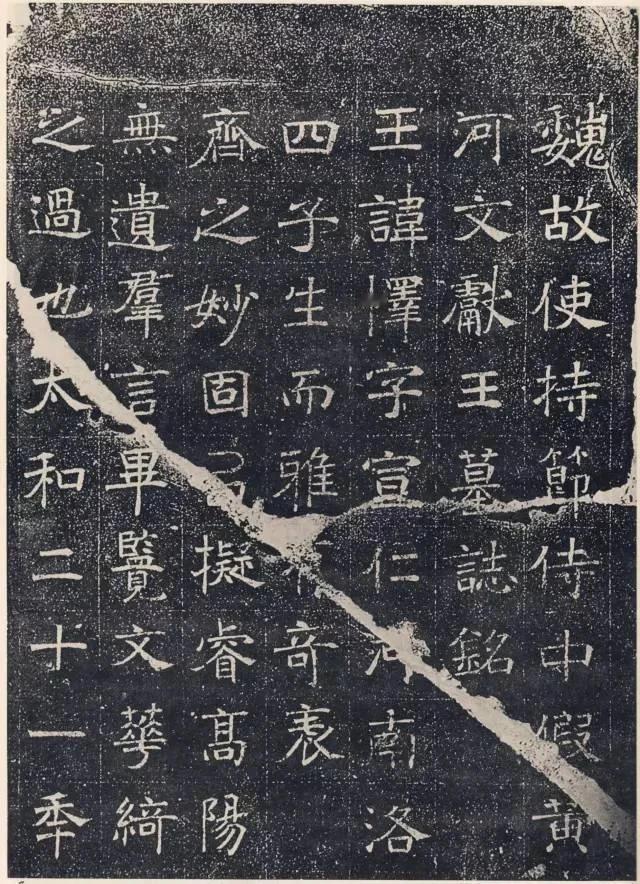 魏故使持節侍中假黄
河文獻王墓誌銘
王諱懌字宣仁河南洛
四子生而雅有奇表
齊之妙固㠯擬睿髙陽
無遺羣言畢覽文華綺
之過也太和二十一年